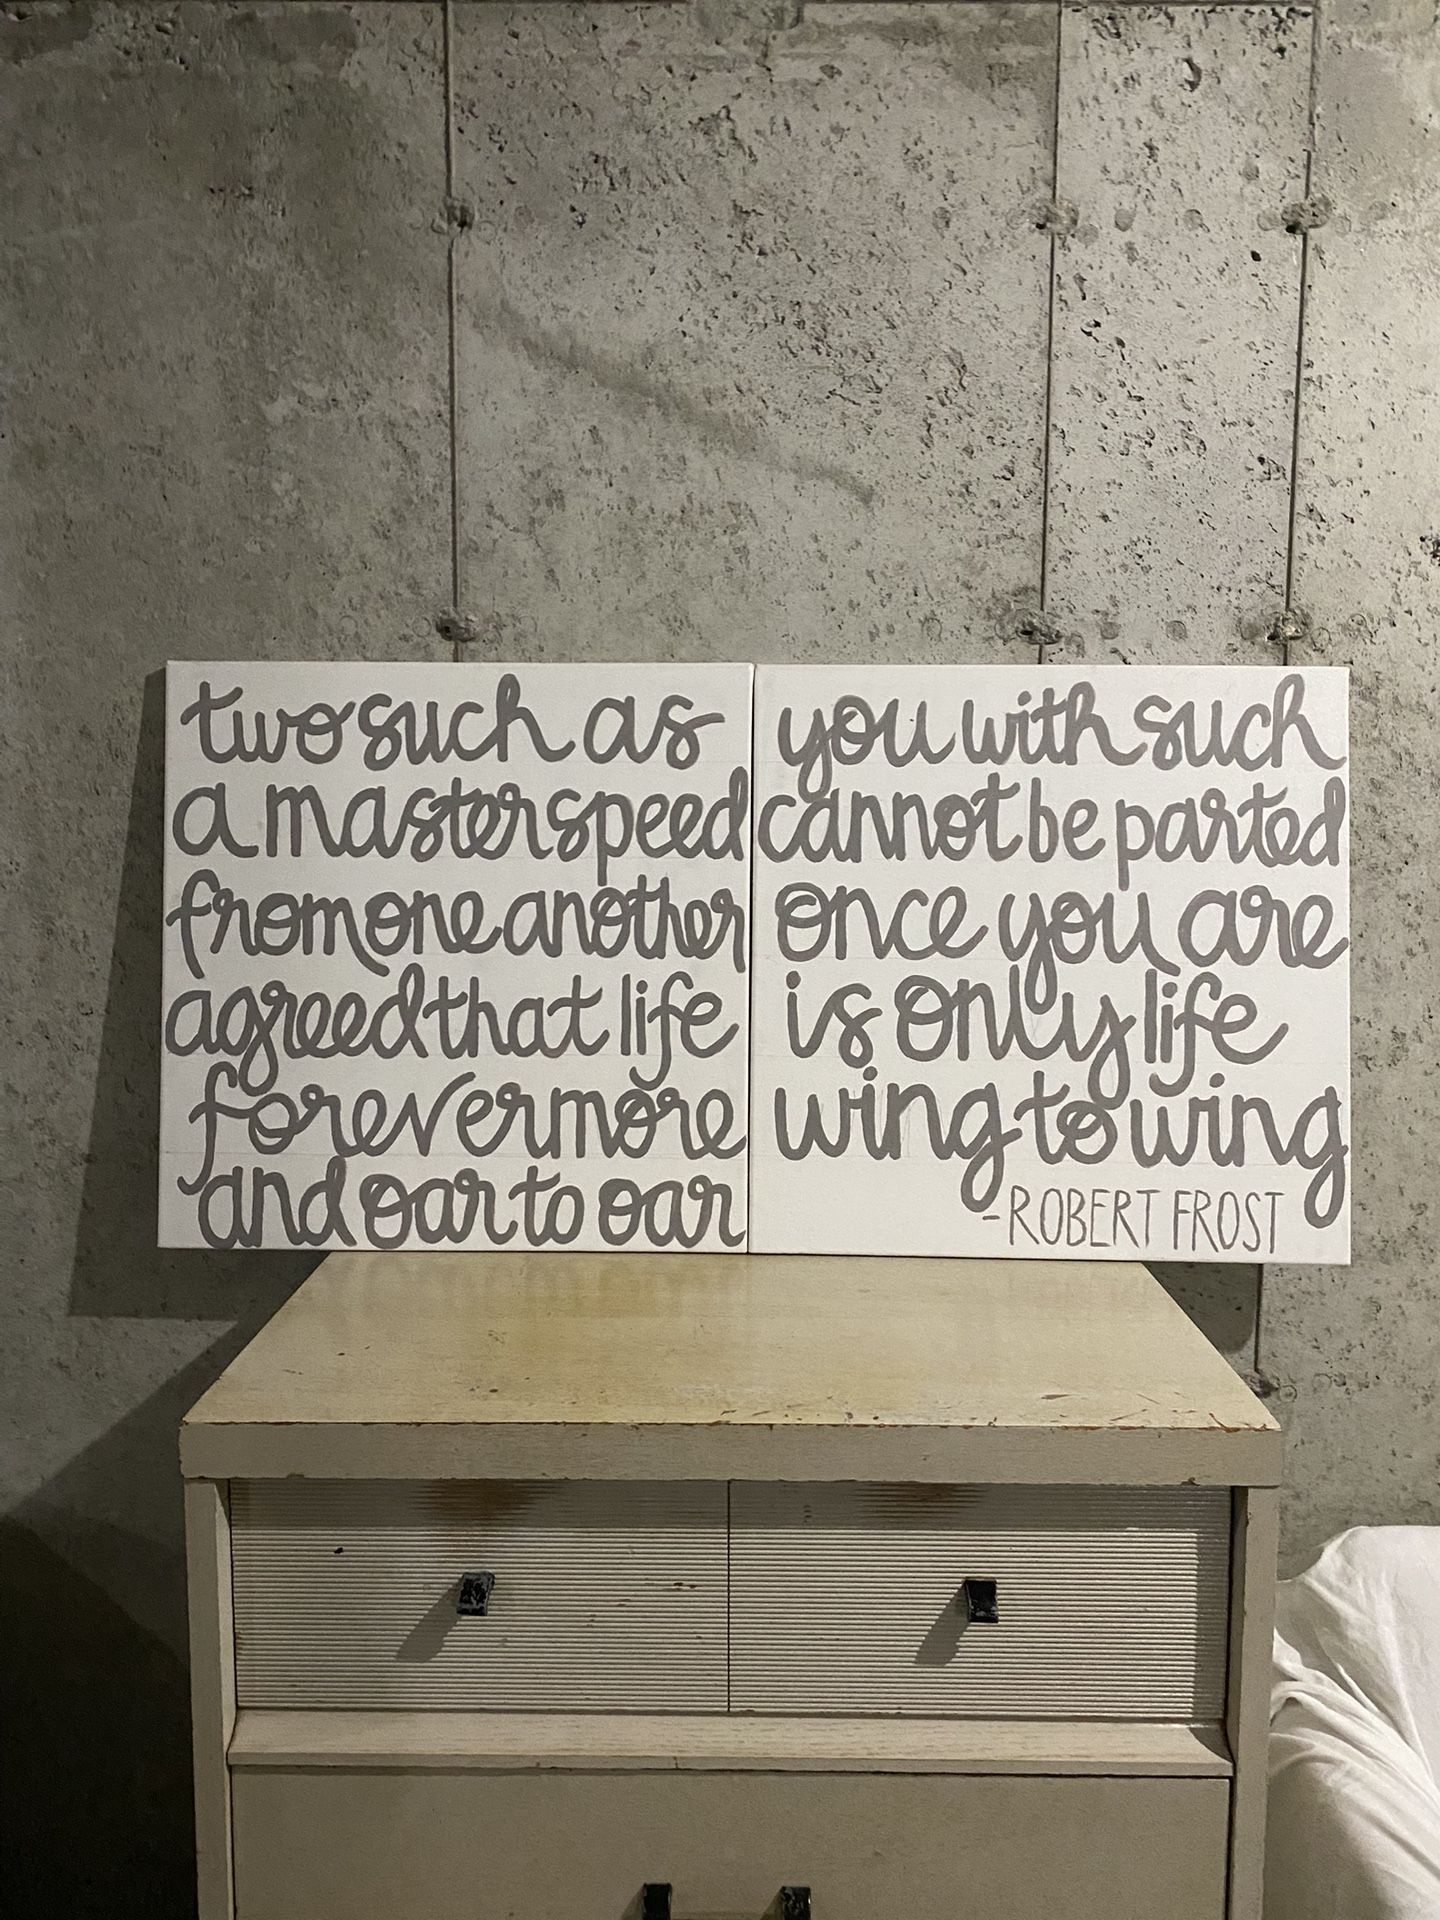 two such as you with such
a master speed cannot be parted
from one another once you are
agreed that life is only life
forevermore wing to wing
and oar to oar
-ROBERT FROST